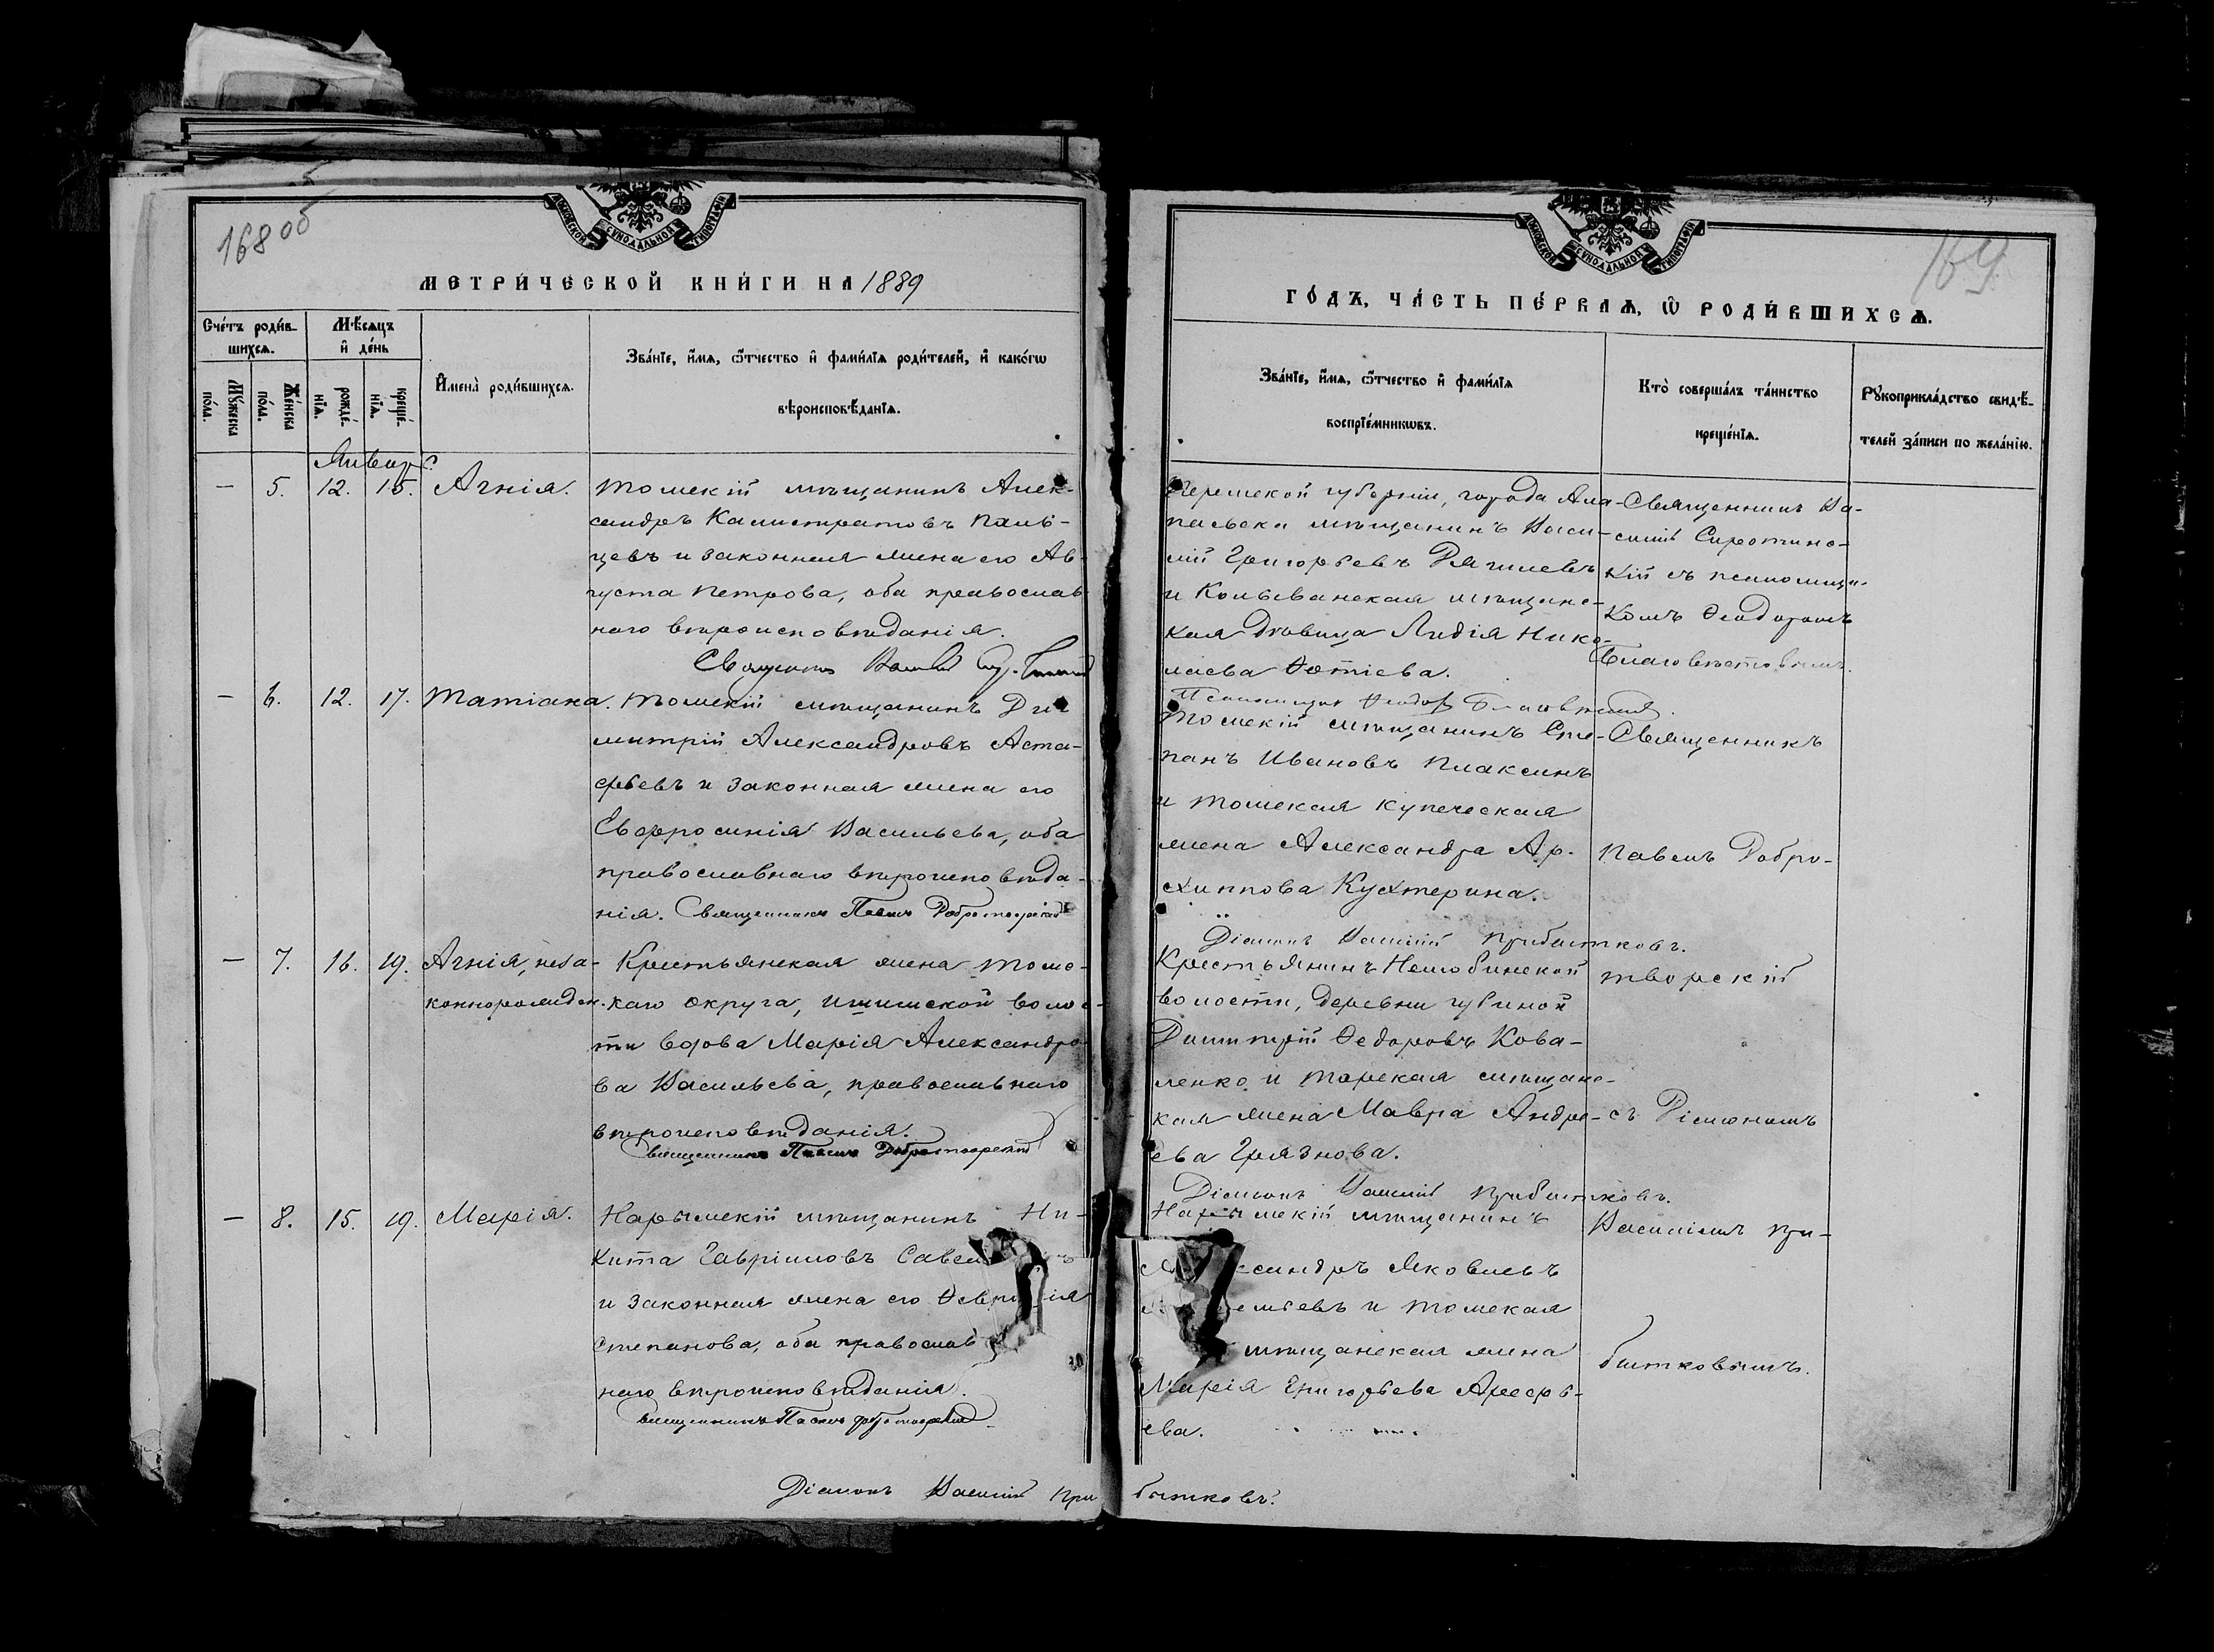 168 об
МОСКОВСКОЙ СѴНОДАЛЬНОЙ ТИПОГРАФІИ
МЕТРИ́ЧЕСКОЙ КНИ́ГИ НА 1889
Сче́тъ роди́в-
шихсѧ.
Мѣ́сѧцъ
и҆ де́нь
Мꙋ́жеска
по́ла.
Же́нска
по́ла.
рожде́-
нїѧ.
креще́-
нїѧ.
И҆мена̀ роди́вшихсѧ.
Зва́нїе, и҆́мѧ, ѻ҆́тчество и҆ фами́лїѧ роди́телей, и҆ како́гѡ
вѣроисповѣ́данїѧ.
Январь.
— 5. 12. 15. Агнія. Томскій мѣщанинъ Алек-
сандръ Калистратовъ
цевъ и законная жена его Ав-
густа Петрова, оба православ-
наго вѣроисповѣданія.
Священникъ Василій
— 6. 12. 17. Татіана. Томскій мѣщанинъ Ди-
митрій Александровъ Аста-
фьевъ и законная жена его
Евфросинія Васильева, оба
православнаго вѣроисповѣда-
нія. Священникъ Павелъ Добротворскій
— 7. 16. 19. Агнія, неза-
коннорожден. Крестьянская жена Томс-
каго округа, Ишимской волос-
ти вдова Марія Александро-
ва Васильева, православнаго
вѣроисповѣданія.
Священникъ Павелъ Добротворскій
— 8. 15. 19. Марія. Нарымскій мѣщанинъ Ни-
кита Гавріиловъ
и законная жена его
Степанова, оба православ-
наго вѣроисповѣданія.
Священникъ Павелъ Добротворскій
Діаконъ Василій При
169
МОСКОВСКОЙ СѴНОДАЛЬНОЙ ТИПОГРАФІИ
ГО́ДЪ, ЧА́СТЬ ПЕ́РВАѦ, Ѡ҆ РОДИ́ВШИХСѦ.
Зва́нїе, и҆́мѧ, ѻ҆́тчество и҆ фами́лїѧ
воспрїе́мникѡвъ.
Кто̀ соверша́лъ та́инство
креще́нїѧ.
Рꙋкоприкла́дство свидѣ́-
телей за́писи по жела́нїю.
Пермской губерніи, города Ала-
паевска мѣщанинъ Васи-
лій Григорьевъ
и Колыванская мѣщанс-
кая дѣвица Лидія Нико-
лаева Фотіева.
Псаломщикъ Ѳеодоръ
Священникъ Ва-
силій Сиротинс-
кій съ псаломщи-
комъ Ѳеодоромъ
Благовѣстовымъ.
Томскій мѣщанинъ Сте-
панъ Ивановъ Плаксинъ
и Томская купеческая
жена Александра Ар-
хиппова Кухтерина.
Діаконъ Василій Прибытковъ.
Священникъ
Павелъ Добро-
творскій
съ Діакономъ
Василіемъ При-
бытковымъ.
Крестьянинъ Нелюбинской
волости, деревни Губиной
Димитрій Ѳедоровъ Кова-
ленко и Томская мѣщанс-
кая жена Мавра Андре-
ева Грязнова.
Діаконъ Василій Прибытковъ.
Нарымскій мѣщанинъ
ксандръ Яковлевъ
и Томская
мѣщанская жена
Марія Григорьева Арефь-
ева.
бытковъ.